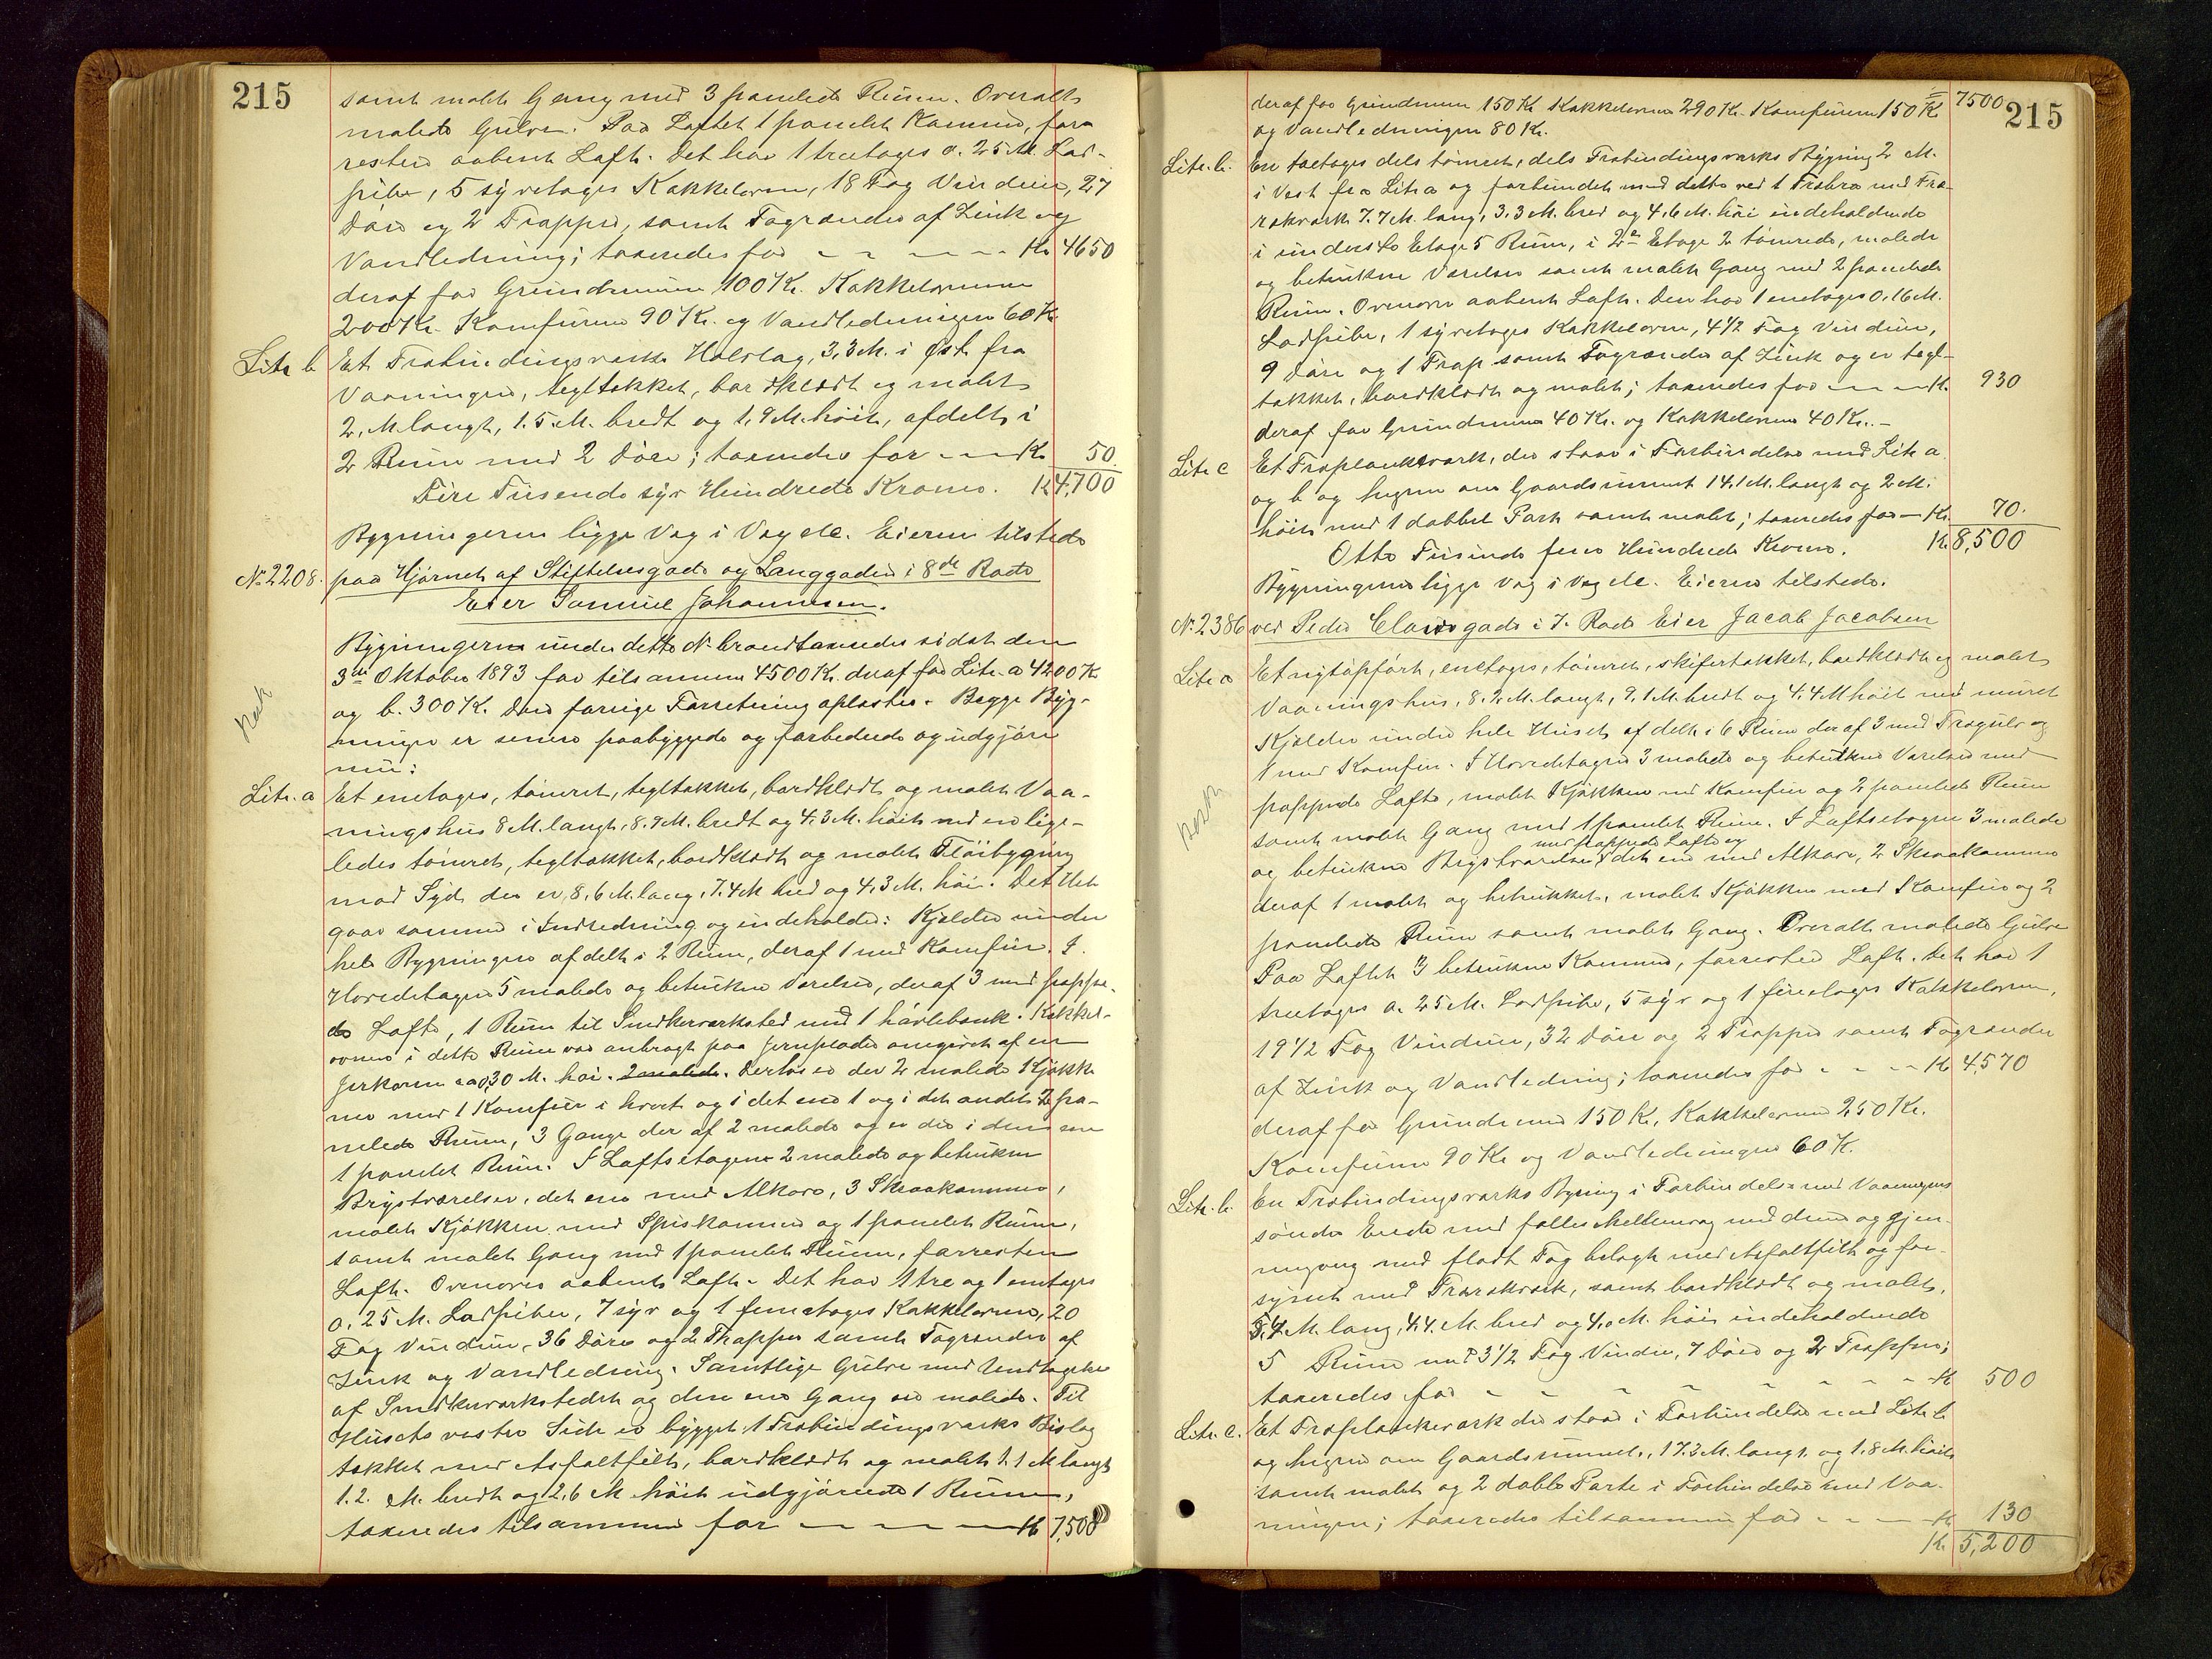 215
samt malet Gang med 3 panelede Rum. Overalt
malede Gulve. Paa Loftet 1 panelet Kammer, for-
resten aabent Loft. Det har 1 treetages 0.25 M. Lod-
pibe, 5 syvetages Kakkelovne, 18 Fag Vinduer, 27
Døre og 2 Trapper, samt Tagrender af Zink og
Vandledning; taxeredes for - - - - - Kr 4650
deraf for Grundmuren 100 Kr. Kakkelovnene
200 Kr. Komfurene 90 Kr. og Vandledningen 60 Kr.
Litr b Et Træbindingsværks Halvtag, 3,3 M. i Øst fra
Vaaningen, tegltækket, bordklædt og malet
2, M. langt, 1.5 M. bredt og 1,9 M. høit, afdelt i
2 Rum med 2 Døre; taxeredes for - - - Kr 50.
Fire Tusende syv Hundrede Kroner. Kr 4,700
Bygningerne ligge Væg i Væg etc. Eieren tilstede
No 2208. paa Hjørnet af Stiftelsesgade og Langgaden i 8de Rode
Eier Samuel Johannesen.
Bygningerne under dette No brandtaxeredes sidst den
3die Oktober 1893 for tilsammen 4500 Kr. deraf for Litr. a 4200 Kr
og b. 300 Kr. Den forrige Forretning oplæstes. Begge Byg-
ninger er senere paabyggede og forbedrede og udgjøre
nu:
Litr. a Et enetages, tømret, tegltækket, bordklædt og malet Vaa-
ningshus 8 M. langt, 8.7 M. bredt og 4.3 M. høit med en lige-
ledes tømret, tegltækket, bordklædt og malet Fløibygning
mod Syd der er 8,6 M. lang, 7.4 M bred og 4,3 M. høi. Det Hele
gaar sammen i Indredning og indeholder: Kjelder under
hele Bygningen afdelt i 2 Rum, deraf 1 med Komfur. I
Hovedetagen 5 malede og betrukne Værelser, deraf 3 med pappe-
de Lofte, 1 Rum til Snedkerværksted med 1 høvlebænk. Kakkel-
ovnen i dette Rum var anbragt paa Jernplader omgivet af en
Jernkarm ca 0,30 M. høi. 2 malede. Derhos er der 2 malede Kjøkke
ner med 1 Komfur i hvert og i det ene 1 og i det andet 2 pa-
nelede Rum, 3 Gange der af 2 malede og er der i den ene
1 panelet Rum. I Loftsetagen 2 malede og betrukne
Brystværelser, det ene med Alkove, 3 Skraakammer,
malet Kjøkken med Spiskammer og 1 panelet Rum,
samt malet Gang med 1 panelet Rum, forresten
Loft. Ovenover aabent Loft. Det har 1 tre og 1 enetages
0.25 M. Lodpiber, 7 syv og 1 femetages Kakkelovne, 20
Fag Vinduer, 36 Døre og 2 Trapper samt Tagrender af
Zink og Vandledning. Samtlige Gulve med Undtagelse
af Snedkerværkstedet og den ene Gang er malede. Til
Husets vestre Side er bygget 1 Træbindingsværks Bislag
tækket med Asfaltfilt, bordklædt og malet 1.1 M langt
1.2. M. bredt og 2,6 M høit udgjørende 1 Rum,
taxeredes tilsammen for - - - - Kr 7,500
215
deraf for Grundmuren 150 Kr Kakkelovnene 290 Kr. Komfurene 150 Kr 7500
og Vandledningen 80 Kr.
Litr. b. En toetages dels tømret, dels Træbindingsværks Bygning 2 M.
i Vest fra Litr a og forbundet med dette ved 1 Træbro med Træ-
rækværk 7.7 M. lang, 3.3 M. bred og 4,6 M. høi indeholdende
i underste Etage 5 Rum, i 2den Etage 2 tømrede, malede
og betrukne Værelser samt malet Gang med 2 panelede
Rum. Ovenover aabent Loft. Den har 1 enetages 0,16 M.
Lodpibe, 1 syvetages Kakkelovn, 4 1/2 Fag Vinduer,
9 Døre og 1 Trap samt Tagrender af Zink og er tegl-
tækket, bordklædt og malet; taxeredes for - - - Kr. 930
deraf for Grundmuren 40 Kr. og Kakkelovnen 40 Kr. -
Litr c Et Træplankeværk, der staar i Forbindelse med Litr a
og b og hegner om Gaardsrummet 14,1 M. langt og 2 M.
høit med 1 dobbel Port samt malet; taxeredes for - Kr. 70.
Otte Tusinde fem Hundrede Kroner. Kr 8,500
Bygningerne ligge Væg i Væg etc. Eieren tilstede.
No. 2386 ved Peder Clausgade i 7. Rode Eier Jacob Jacobsen
Litr a Et nyt opført, enetages, tømret, skifertækket, bordklædt og malet
Vaaningshus, 8.2 M. langt, 9.1 M. bredt og 4.4 M høit med muret
Kjelder under hele Huset afdelt i 6 Rum deraf 3 med Trægulv og
1 med Komfur. I Hovedetagen 3 malede og betrukne Værelser med
pappede Lofte, malet Kjøkken med Komfur og 2 panelede Rum
samt malet Gang med 1 panelet Rum. I Loftsetagen 3 malede
med pappede Lofte og
og betrukne Brystværelser det ene med Alkove, 2 Skraakammer
deraf 1 malet og betrukket, malet Kjøkken med Komfur og 2
panelede Rum samt malet Gang. Overalt malede Gulve
Paa Loftet 3 betrukne Kammer, forresten Loft. Det har 1
treetages 0.25 M. Lodpibe, 5 syv og 1 fireetages Kakkelovne,
19 1/2 Fag Vinduer, 32 Døre og 2 Trapper samt Tagrender
af Zink og Vandledning; taxeredes for - - - - Kr 4,570
deraf for Grundmuren 150 Kr, Kakkelovnene 250 Kr.
Komfurene 90 Kr og Vandledningen 60 Kr.
Litr. b. En Træbindingsværks Bygning i Forbindelse med Vaaningens
søndre Ende med fælles Skillevæg med denne og gjen-
nemgang med fladt Tag belagt med Asfaltfilt og for-
synet med Trærækværk, samt bordklædt og malet,
5,4 M. lang, 4,4. M. bred og 4,0 M. høi indeholdende
5 Rum med 3 1/2 Fag Vinduer, 7 Døre og 2 Trapper;
taxeredes for - - - - - - - - Kr 500
Litr. c. Et Træplankeværk der staar i Forbindelse med Litr b
og hegner om Gaardsrummet, 17.3 M. langt og 1,8 M. høit
samt malet og 2 doble Porte i Forbindelse med Vaa-
ningen; taxeredes tilsammen for - - - Kr 130
Kr 5,200